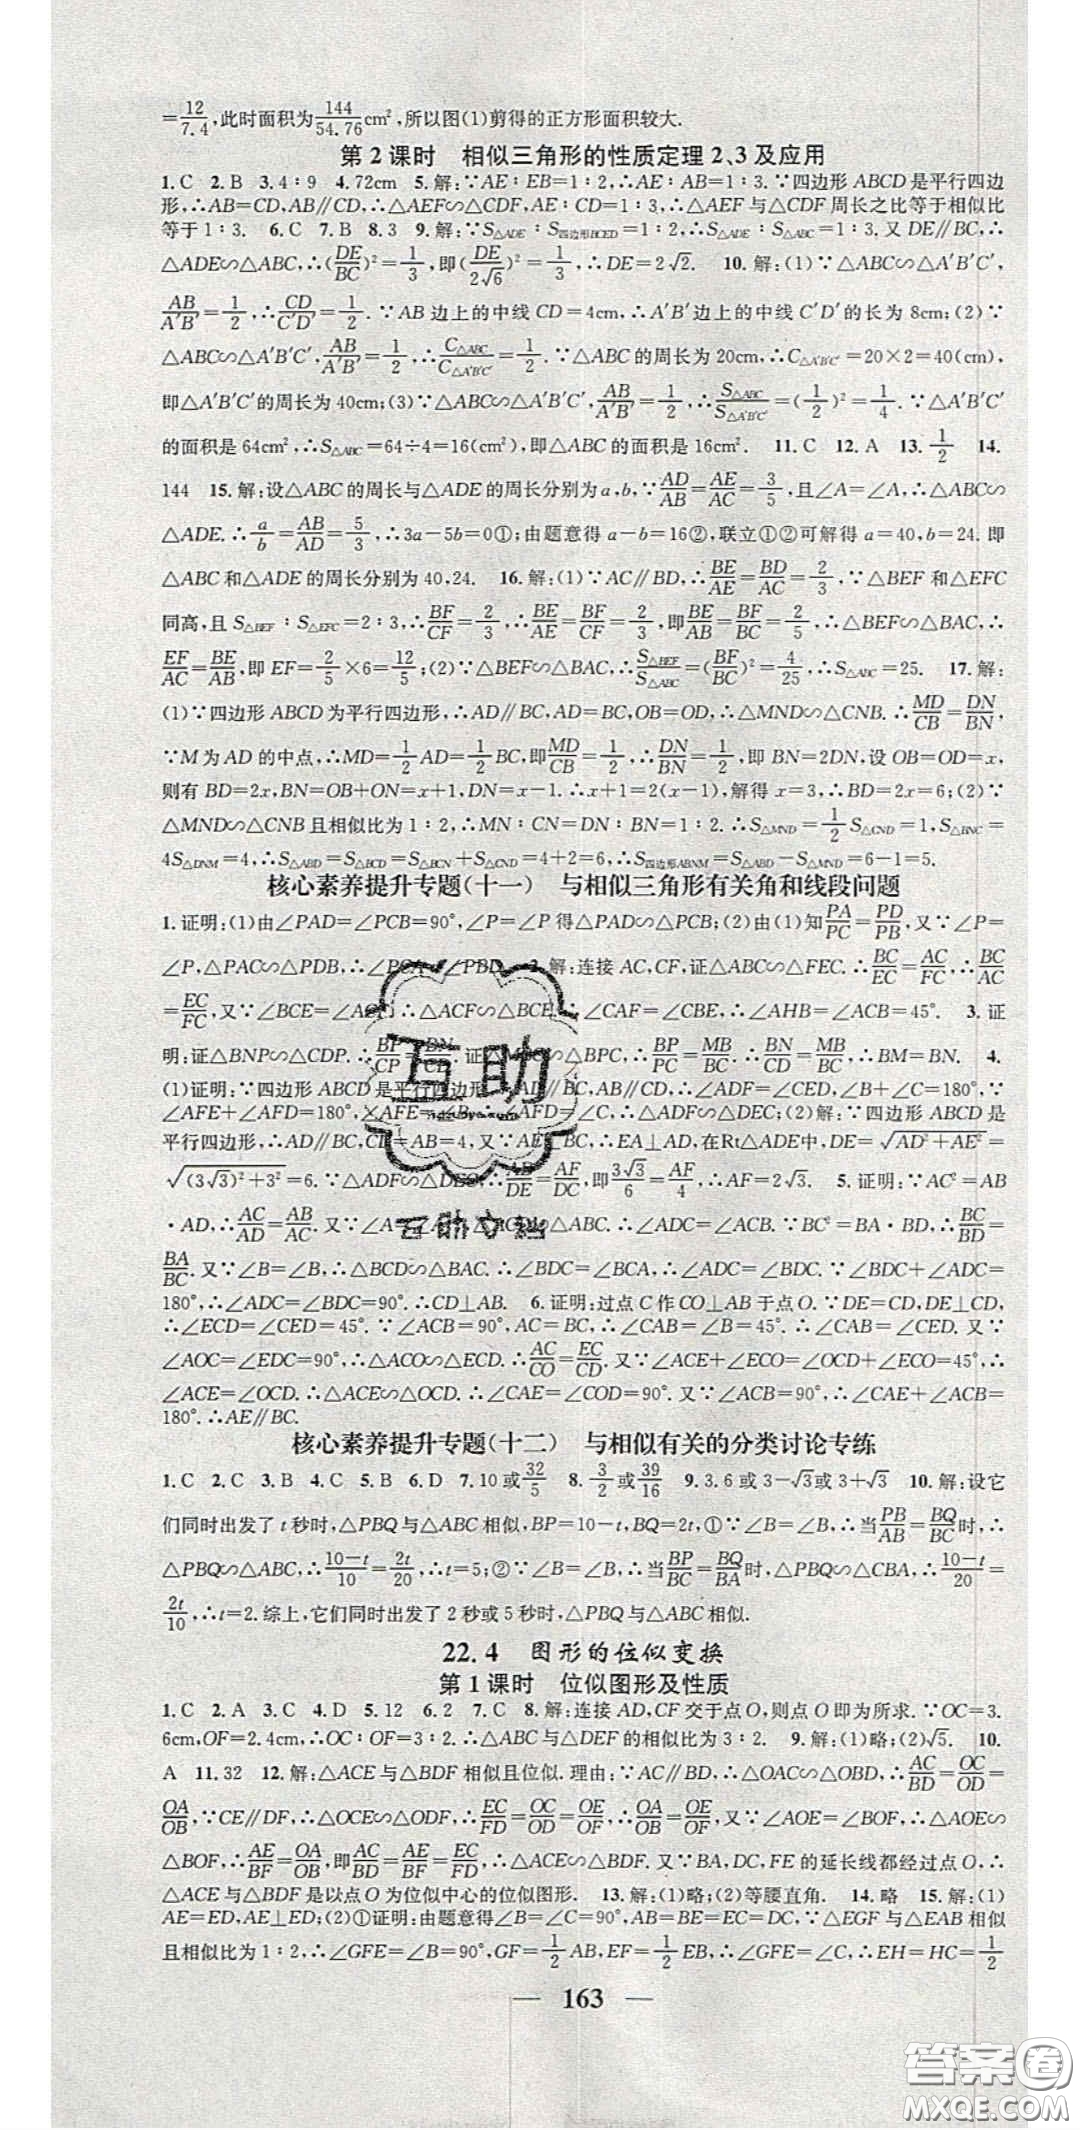 =12/7.4,此时面积为144/54.76cm²,所以图(1)剪得的正方形面积较大.
第2课时 相似三角形的性质定理2、3及应用
1.C 2.B 3.4∶9 4.72cm 5.解:∵AE∶EB=1∶2,∴AE∶AB=1∶3.∵四边形ABCD是平行四边
形,∴AB=CD,AB∥CD,∴△AEF∽△CDF,AE∶CD=1∶3,∴△AEF与△CDF周长之比等于相似比
等于1∶3. 6.C 7.B 8.3 9.解:∵S△ADE∶S四边形BCED=1∶2,∴S△ADE∶S△ABC=1∶3.又DE∥BC,∴
△ADE∽△ABC,∴(DE/BC)²=1/3,即(DE/2√6)²=1/3,∴DE=2√2. 10.解:(1)∵△ABC∽△A′B′C′,
AB/A′B′=1/2,∴CD/C′D′=1/2.∵AB边上的中线CD=4cm,∴A′B′边上的中线C′D′的长为8cm;(2)∵
△ABC∽△A′B′C′,AB/A′B′=1/2,∴C△ABC/C△A′B′C′=1/2.∵△ABC的周长为20cm,∴C△A′B′C′=20×2=40(cm),
即△A′B′C′的周长为40cm;(3)∵△ABC∽△A′B′C′,AB/A′B′=1/2,∴S△ABC/S△A′B′C′=(1/2)²=1/4.∵△A′B′C′
的面积是64cm²,∴S△ABC=64÷4=16(cm²),即△ABC的面积是16cm². 11.C 12.A 13.1/2 14.
144 15.解:设△ABC的周长与△ADE的周长分别为a,b,∵AD/AB=AE/AC=3/5,且∠A=∠A,∴△ABC∽
△ADE.∴a/b=AB/AD=5/3,∴3a-5b=0①;由题意得a-b=16②,联立①②可解得a=40,b=24.即
△ABC和△ADE的周长分别为40,24. 16.解:(1)∵AC∥BD,∴BE/AE=BD/AC=2/3,∵△BEF和△EFC
同高,且S△BEF∶S△EFC=2∶3,∴BF/CF=2/3,∴BE/AE=BF/CF=2/3,即BE/AB=BF/BC=2/5,∴△BEF∽△BAC,∴
EF/AC=BE/AB,即EF=2/5×6=12/5;(2)∵△BEF∽△BAC,∴S△BEF/S△ABC=(BF/BC)²=4/25,∴S△ABC=25. 17.解:
(1)∵四边形ABCD为平行四边形,∴AD∥BC,AD=BC,OB=OD,∴△MND∽△CNB.∴MD/CB=DN/BN,
∵M为AD的中点,∴MD=1/2AD=1/2BC,即MD/CB=1/2,∴DN/BN=1/2,即BN=2DN,设OB=OD=x,
则有BD=2x,BN=OB+ON=x+1,DN=x-1.∴x+1=2(x-1),解得x=3,∴BD=2x=6;(2)∵
△MND∽△CNB且相似比为1∶2,∴MN∶CN=DN∶BN=1∶2.∴S△MND=1/2S△CND=1,S△BNC=
4S△DNM=4,∴S△ABD=S△BCD=S△BCN+S△CND=4+2=6,∴S四边形ABNM=S△ABD-S△MND=6-1=5.
核心素养提升专题(十一) 与相似三角形有关角和线段问题
1.证明:(1)由∠PAD=∠PCB=90°,∠P=∠P得△PAD∽△PCB;(2)由(1)知PA/PC=PD/PB,又∵∠P=
∠P,△PAC∽△PDB,∴∠PCA=∠PBD. 2.解:连接AC,CF,证△ABC∽△FEC.∴BC/EC=AC/FC,∴BC/AC
=EC/FC,又∵∠BCE=∠ACF,∴△ACF∽△BCE,∴∠CAF=∠CBE,∴∠AHB=∠ACB=45°. 3.证
明:证△BNP∽△CDP.∴BP/CP=BN/CD.证△ ∽△BPC,∴BP/PC=MB/BC.∴BN/CD=MB/BC,∴BM=BN. 4.
(1)证明:∵四边形ABCD是平行四边形,∴AD∥BC,AB∥CD,∴∠ADF=∠CED,∠B+∠C=180°.∵
∠AFE+∠AFD=180°,∠AFE=∠B,∴∠AFD=∠C,∴△ADF∽△DEC;(2)解:∵四边形ABCD是
平行四边形,∴AD∥BC,CD=AB=4,又∵AE⊥BC,∴EA⊥AD,在Rt△ADE中,DE=√(AD²+AE²)=
√((3√3)²+3²)=6.∵△ADF∽△DEC,∴AD/DE=AF/DC,即3√3/6=AF/4,∴AF=2√3. 5.证明:∵AC²=AB
·AD,∴AC/AD=AB/AC.又∵∠A=∠A,∴△ACD∽△ABC.∴∠ADC=∠ACB.∵BC²=BA·BD,∴BC/BD=
BA/BC.又∵∠B=∠B,∴△BCD∽△BAC.∴∠BDC=∠BCA,∴∠ADC=∠BDC.∵∠BDC+∠ADC=
180°,∴∠ADC=∠BDC=90°.∴CD⊥AB. 6.证明:过点C作CO⊥AB于点O.∵DE=CD,DE⊥CD,
∴∠ECD=∠CED=45°.∵∠ACB=90°,AC=BC,∴∠CAB=∠B=45°.∴∠CAB=∠CED.又∵
∠AOC=∠EDC=90°,∴△ACO∽△ECD.∴AC/CO=EC/CD.又∵∠ACE+∠ECO=∠OCD+∠ECO=45°,∴
∠ACE=∠OCD.∴△ACE∽△OCD.∴∠CAE=∠COD=90°.又∵∠ACB=90°,∴∠CAE+∠ACB=
180°.∴AE∥BC.
核心素养提升专题(十二) 与相似有关的分类讨论专练
1.C 2.C 3.B 4.C 5.B 6.D 7.10或32/5 8.3/2或39/16 9.3.6或3-√3或3+√3 10.解:设它
们同时出发了t秒时,△PBQ与△ABC相似,BP=10-t,BQ=2t,①∵∠B=∠B,∴当PB/AB=BQ/BC时,∴
△PBQ∽△ABC,∴10-t/10=2t/20,∴t=5;②∵∠B=∠B,∴当BP/BC=BQ/BA时,△PBQ∽△CBA,∴10-t/20=
2t/10,∴t=2.综上,它们同时出发了2秒或5秒时,△PBQ与△ABC相似.
22.4 图形的位似变换
第1课时 位似图形及性质
1.C 2.A 3.C 4.D 5.12 6.2 7.C 8.解:连接AD,CF交于点O,则点O即为所求.∵OC=3.
6cm,OF=2.4cm,∴OC∶OF=3∶2,∴△ABC与△DEF的相似比为3∶2. 9.解:(1)略;(2)√5. 10.
A 11.32 12.解:△ACE与△BDF相似且位似.理由:∵AC∥BD,∴△OAC∽△OBD,∴AC/BD=OC/OD=
OA/OB,∵CE∥DF,∴△OCE∽△ODF,∴EC/FD=OC/OD=OE/OF,∴OA/OB=OE/OF,又∵∠AOE=∠BOF,∴△AOE∽
△BOF,∴AE/BF=OA/OB,即AC/BD=AE/BF=EC/FD,∴△ACE∽△BDF.又∵BA,DC,FE的延长线都经过点O,∴
△ACE与△BDF是以点O为位似中心的位似图形. 13.解:(1)略;(2)等腰直角. 14.略 15.解:(1)
AE=ED,AE⊥ED;(2)①证明:由题意得∠B=∠C=90°,AB=BE=EC=DC,∵△EGF与△EAB相似
且相似比为1∶2,∴∠GFE=∠B=90°,GF=1/2AB,EF=1/2EB,∴∠GFE=∠C,∴EH=HC=1/2
163
互助
答案圈
MXQE.COM